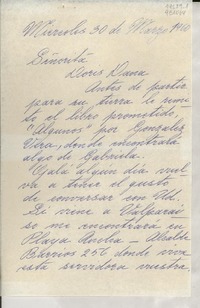 Miércoles 30 de Marzo 1960
Señorita
Doris Dana
Antes de partir
para su tierra le remi-
to el libro prometido,
"Algunos" por Gonzalez
Vera, donde encontrará
algo de Gabriela.
Ojalá algun día vuel
va a tener el gusto
de conversar con Ud.
Si viene a Valparaí-
so me encontrará en
Playa Ancha — Alcalde
Barrios 256 donde vive
esta servidora vuestra.